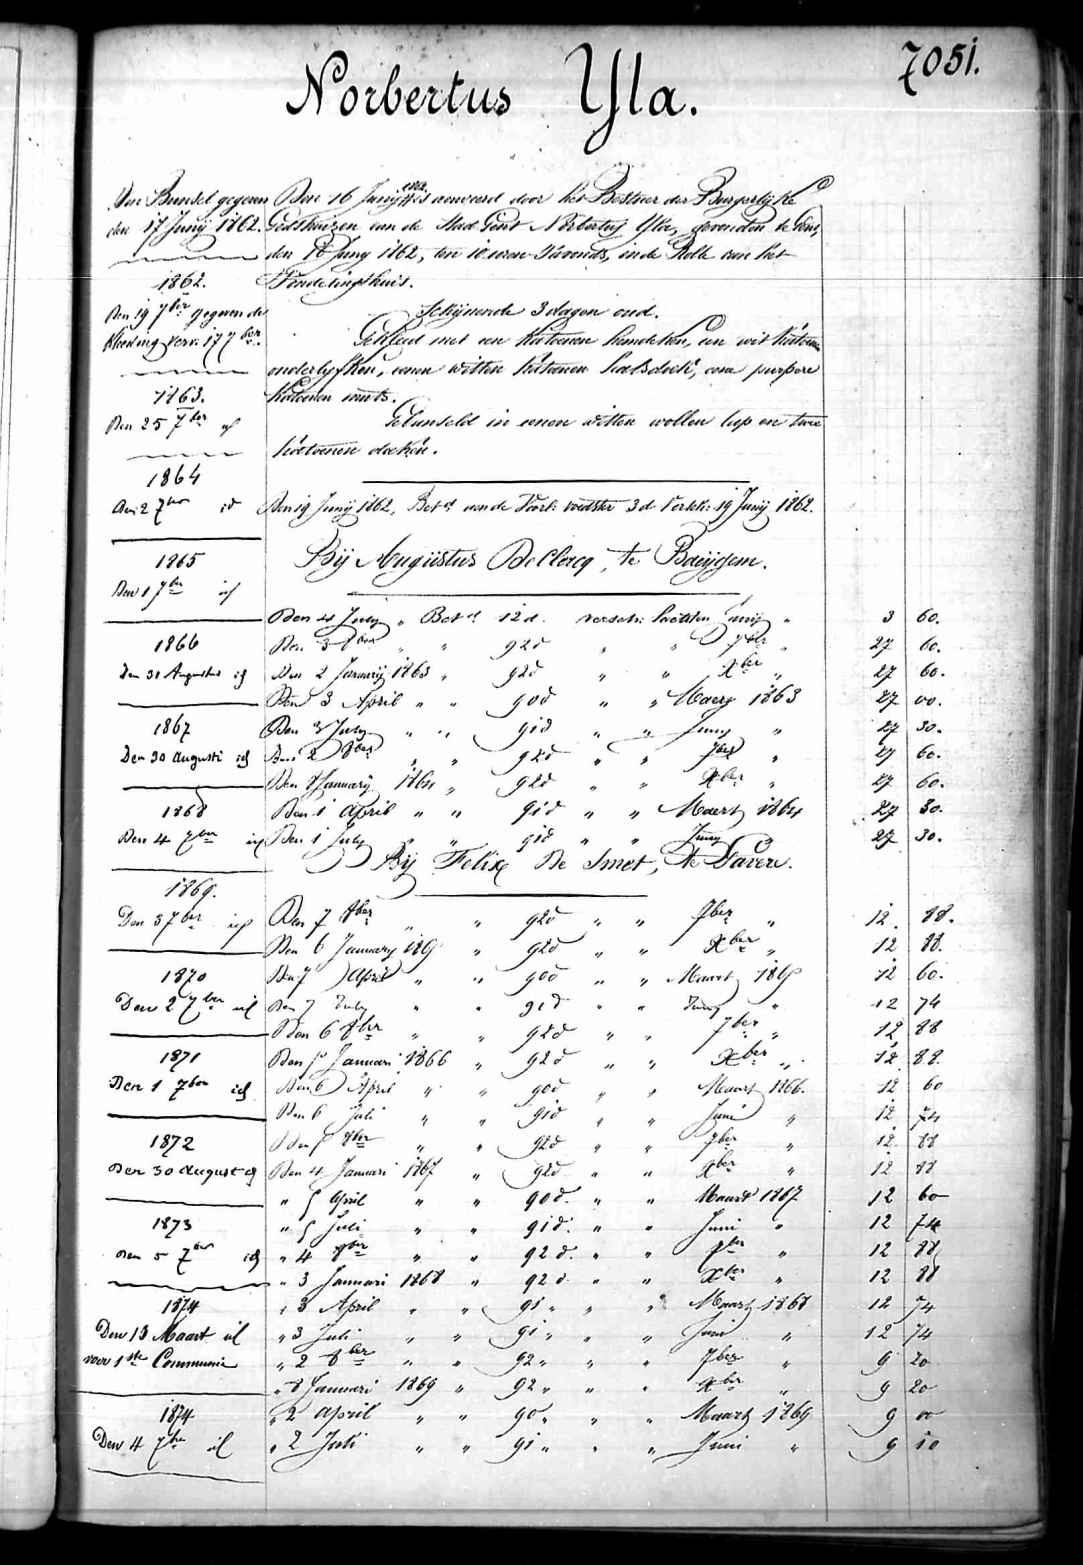 7051.
Norbertus Yla.
Den Bunsel gegeven
den 17 Junij 1862.
1862.
Den 19 7ber gegeven de
kleeding verv. 17 7ber
1863.
Den 25 7ber id
1864
Den 2 7ber id
1865
Den 1 7ber id
1866
Den 31 Augustus id
1867
Den 30 augusti id
1868
Den 4 7ber id
1869.
Den 3 7ber id
1870
Den 2 7ber id
1871
Den 1 7ber id
1872
Den 30 august id
1873
Den 5 7ber id
1874
Den 13 Maart id
voor 1ste Communie
1874
Den 4 7br id
Den 16 Junij is aenveerd door het Bestier der Burgerlijke
Godshuizen van de Stad Gent Norbertus Yla, gevonden te Gent,
den 16 Juny 1862, ten 10 uren s'avonds, in de Rolle van het
Vondelingshuis.
Schijnende 3 dagen oud.
Gekleed met een katoenen hemdeken, een wit katoenen
onderlyfken, eenen witten katoenen halsdoek, eene purpere
katoenen muts.
Gebunseld in eenen witten wollen lap en twee
katoenen doeken.
Den 19 Junij 1862, Betd aan de Voorl. voedster 3 d Verstr. 19 Junij 1862.
Bij Augustus De Clercq, te Bauijgem.
Den 4 July " Betd 12 d. versch. laetsten Junij " 3 60.
Den 3 8ber " " 92 d " " 7ber " 27 60.
Den 2 January 1863 " 92 d " " Xber " 27 60.
Den 3 April " " 90 d " " Maert 1863 27 00.
Den 3 July " " 91 d " " Juny " 27 30.
Den 2 8ber " " 92 d " " 7ber " 27 60.
Den 8 January 1864 " 92 d " " Xber " 27 60.
Den 1 April " " 91 d " " Maert 1864 27 30.
Den 1 July " " 91 d " " Juny " 27 30.
Bij Felix De Smet, te Gavere.
Den 7 8ber " " 92 d " " 7ber " 12 88.
Den 6 January 1865 " 92 d " " Xber " 12 88.
Den 7 April " " 90 d " " Maart 1865 12 60.
Den 7 July " " 91 d " " Juny " 12 74
Den 6 8ber " " 92 d " " 7ber " 12 88
Den 5 Januari 1866 " 92 d " " Xber " 12 88.
Den 6 April " " 90 d " " Maart 1866. 12 60
Den 6 Juli " " 91 d " " Juni " 12 74
Den 5 8ber " " 92 d " " 7ber " 12 88
Den 4 Januari 1867 " 92 d " " Xber " 12 88
" 5 April " " 90 d. " " Maart 1867 12 60
" 5 Juli " " 91 d. " " Juni " 12 74
" 4 8ber " " 92 d. " " 7ber " 12 88
" 3 Januari 1868 " 92 d " " Xber " 12 88
" 3 April " " 91 " " " Maart 1868 12 74
" 3 Juli " " 91 " " " Juni " 12 74
" 2 8ber " " 92 " " " 7ber " 9 20
" 8 Januari 1869 " 92 " " " Xber " 9 20
" 2 April " " 90 " " " Maart 1869 9 00
" 2 Juli " " 91 " " " Juni " 9 10